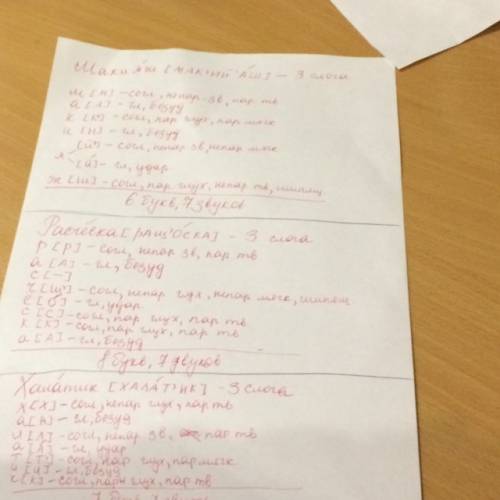 Макия́ж [МАК'ИЙ'А́Ш] – 3 слога
м [М] – согл, непар зв, пар тв
а [А] – гл, безуд
к [К'] – согл, пар глух, пар мягк
и [И] – гл, безуд
я [Й'] – согл, непар зв, непар мягк
[А́] – гл, удар
ж [Ш] – согл, пар глух, непар тв, шипящ
6 букв, 7 звуков
Расчёска [РАЩ'О́СКА] – 3 слога
р [Р] – согл, непар зв, пар тв
а [А] – гл, безуд
с [–]
ч [Щ'] – согл, непар глух, непар мягк, шипящ
ё [О́] – гл, удар
с [С] – согл, пар глух, пар тв
к [К] – согл, пар глух, пар тв
а [А] – гл, безуд
8 букв, 7 звуков
Хала́тик [ХАЛА́Т'ИК] – 3 слога
х [Х] – согл, непар глух, пар тв
а [А] – гл, безуд
л [Л] – согл, непар зв, пар тв
а [А́] – гл, удар
т [Т'] – согл, пар глух, пар мягк
и [И] – гл, безуд
к [К] – согл, пар глух, пар тв